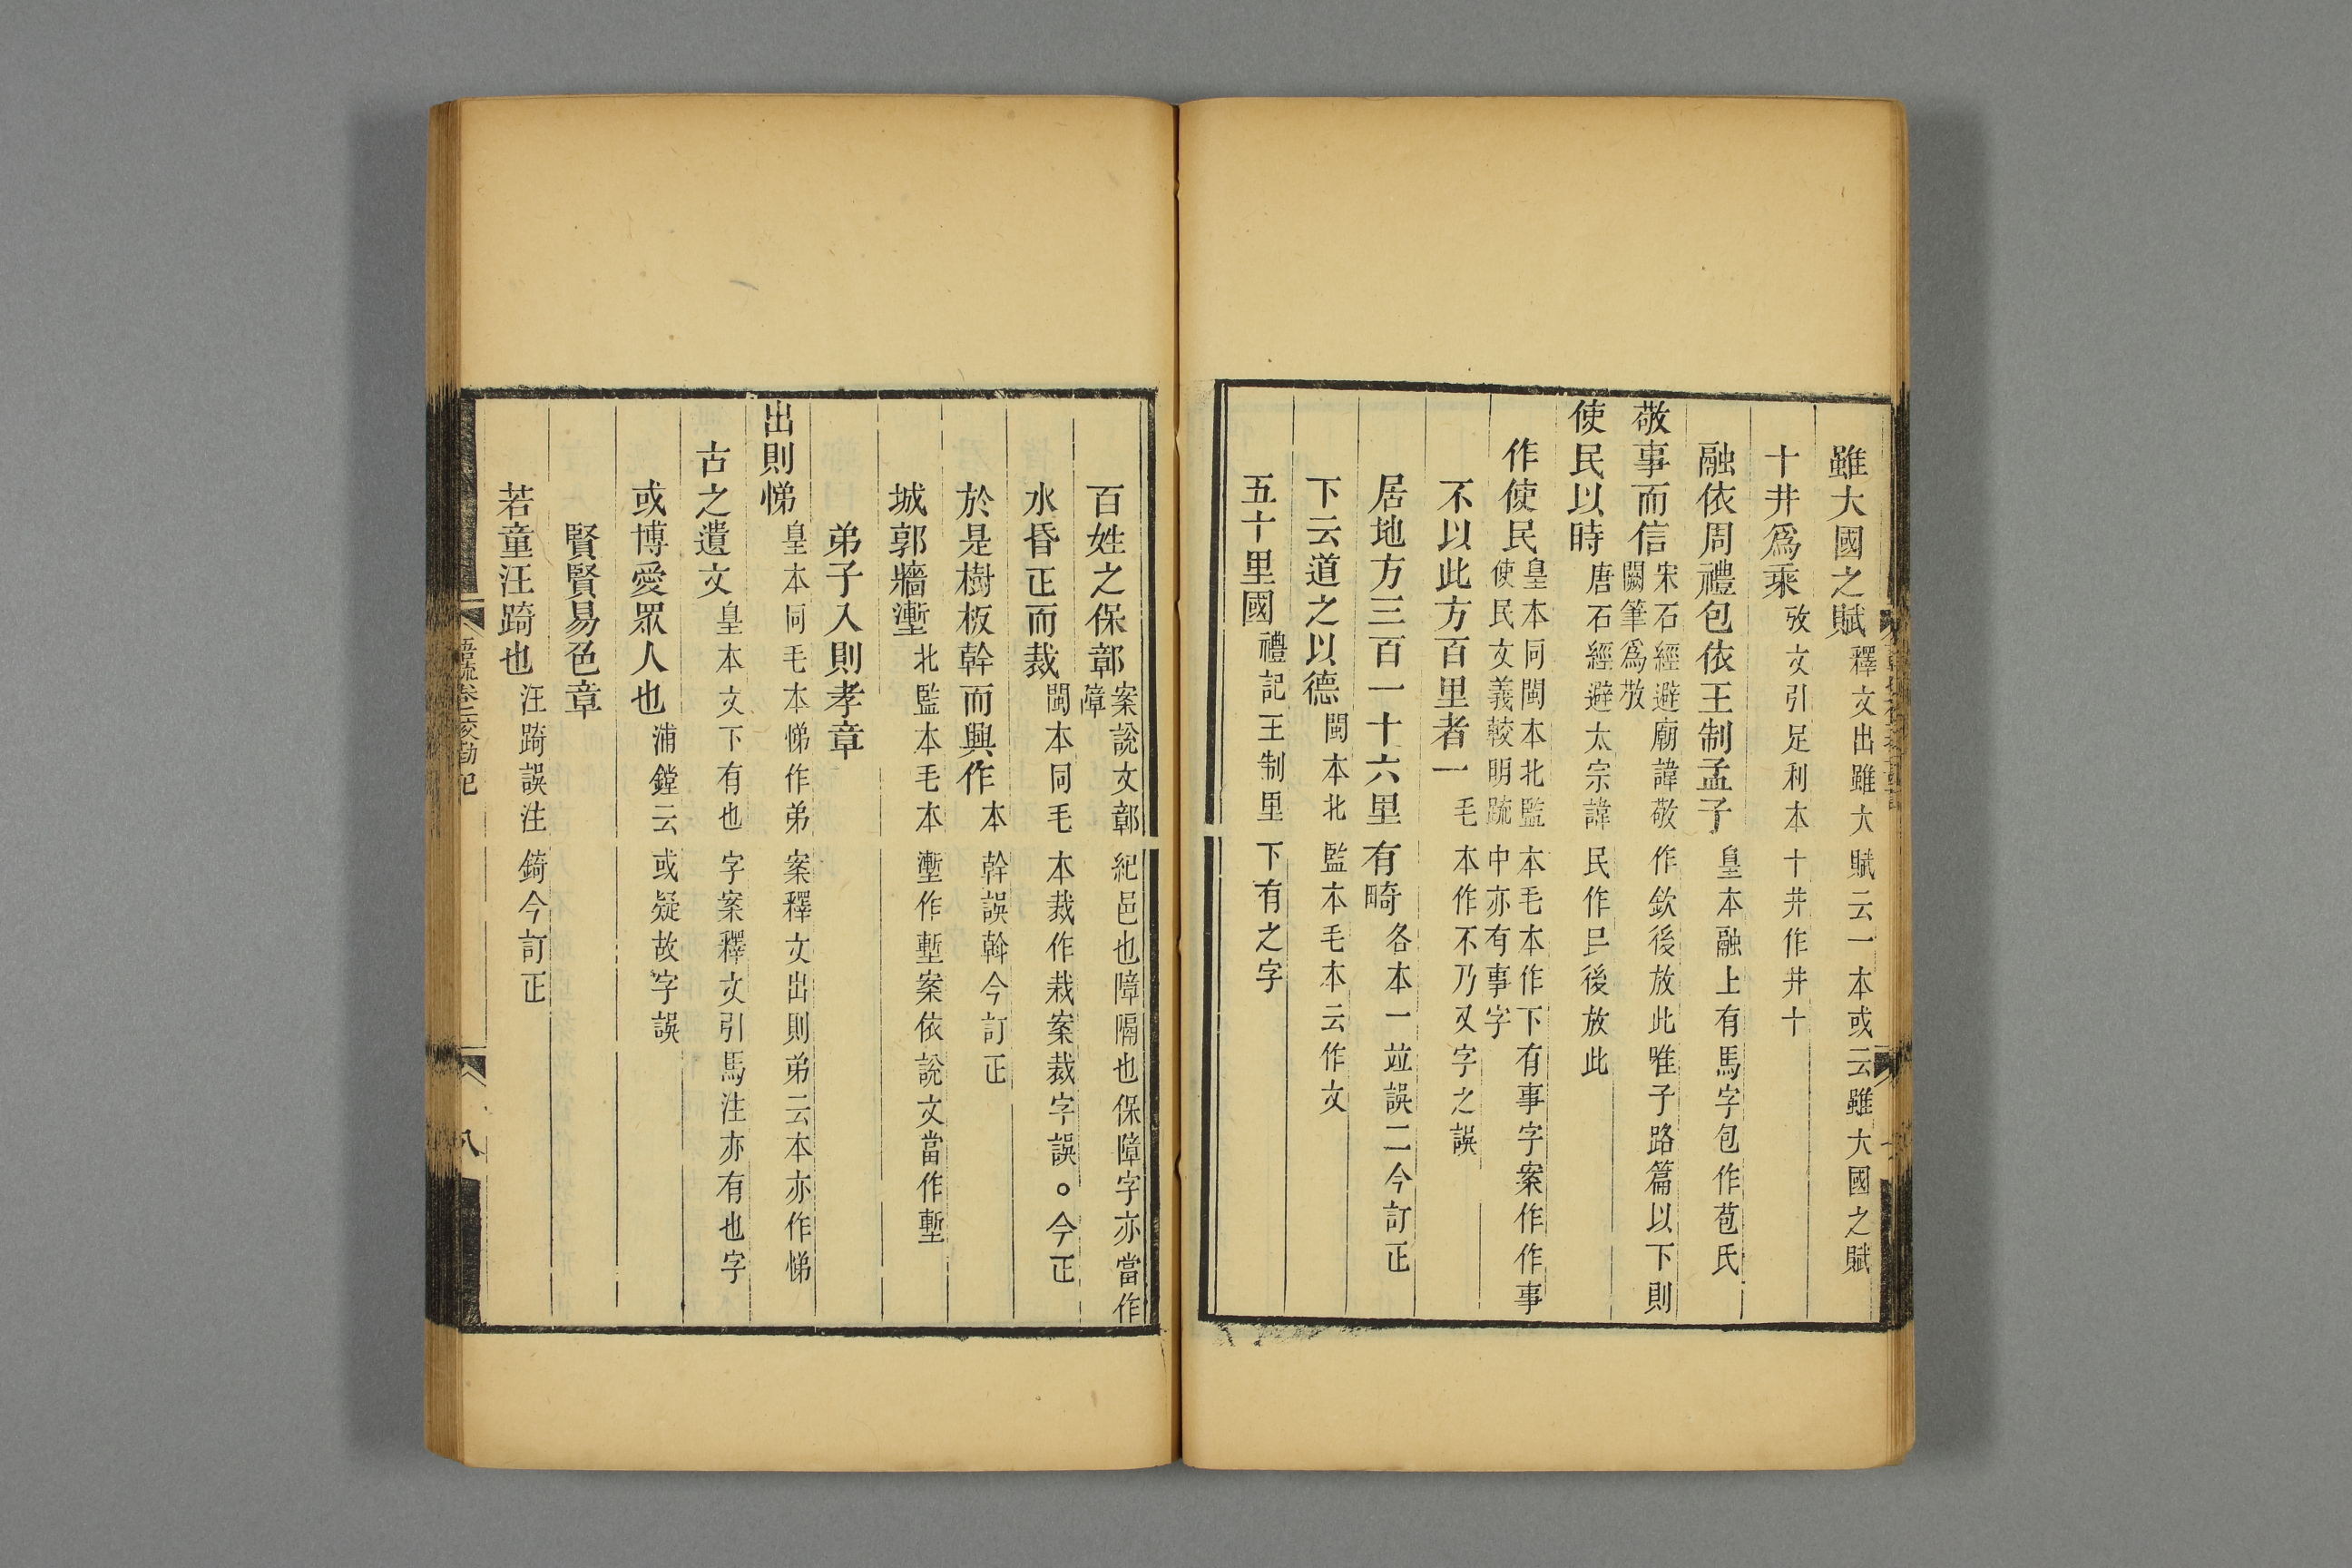 雖大國之賦釋文出雖大賦云一本或云雖大國之賦
十井爲乘攷文引足利本十井作井十
融依周禮包依王制孟子皇本融上有馬字包作苞氏
敬事而信宋石經避廟諱敬作欽後放此唯子路篇以下則闕筆爲敬
使民以時唐石經避太宗諱民作𫞕後放此
作使民皇本同閩本北監本毛本作下有事字案作作事使民文義較明䟽中亦有事字
不以此方百里者一毛本作不乃又字之誤
居地方三百一十六里有畸各本一竝誤二今訂正
下云道之以德閩本北監本毛本云作文
五十里國禮記王制里下有之字
百姓之保鄣案說文鄣紀邑也障隔也保障字亦當作障
水昏正而裁閩本同毛本裁作栽案裁字誤。今正
於是樹板幹而興作本幹誤斡今訂正
城郭牆壍北監本毛本壍作塹案依說文當作塹
弟子入則孝章
出則悌皇本同毛本悌作弟案釋文出則弟云本亦作悌
古之遺文皇本文下有也字案釋文引馬注亦有也字
或博愛眾人也浦鏜云或疑故字誤
賢賢易色章
若童汪踦也汪踦誤注錡今訂正
語䟽卷一挍勘記
八